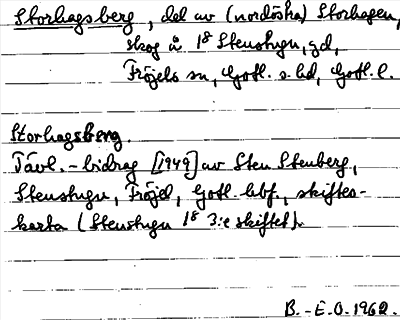 Storhagsberg, del av (nordöstra) Storhagen,
skog å 1⁸ Stenstugu, gd,
Fröjels sn, Gotl. s. hd, Gotl. l.
Storhagsberg.
Tävl.-bidrag [1949] av Sten Stenberg,
Stenstugu, Fröjel, Gotl. hbf., skiftes-
karta (Stenstugu 1⁸ 3:e skiftet).
B.-E.O. 1962.